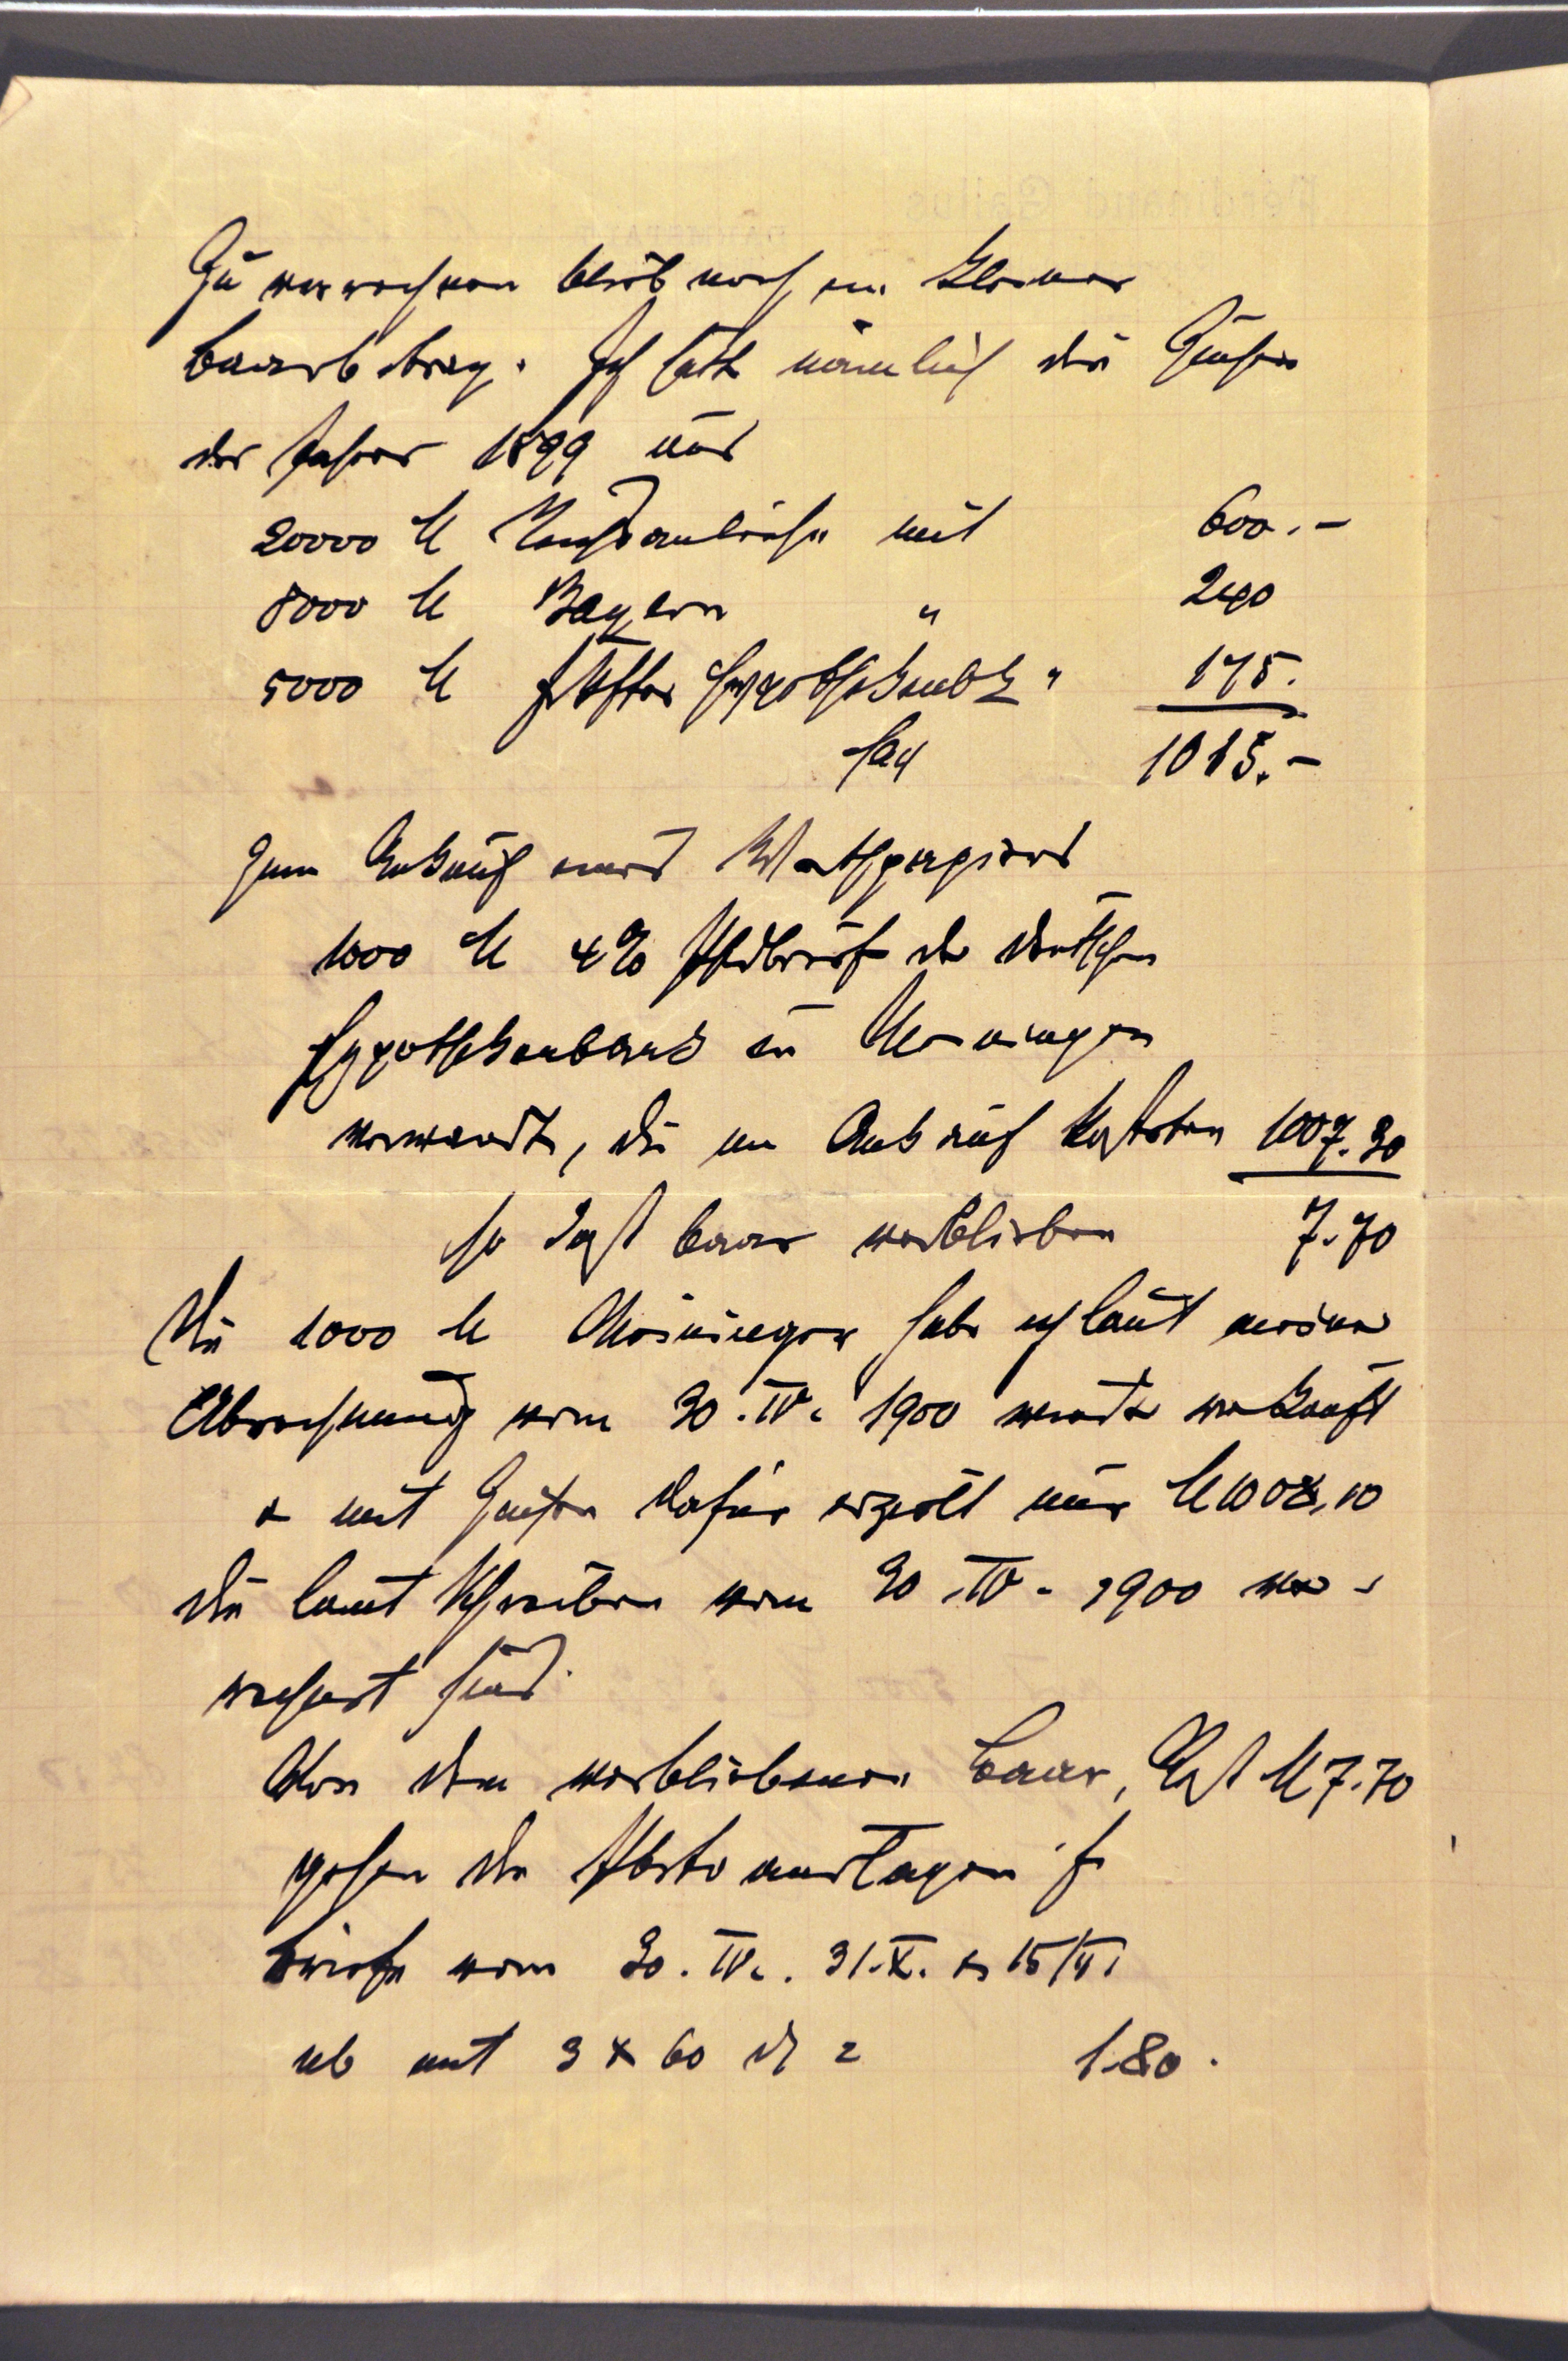 Zu verrechnen bleibt noch ein kleiner
Baarbetrag. Ich hatte nämlich die Zinsen
des Jahres 1899 aus
20000 M Reichsanleihe mit 600.-
8000 M Bayern " 240
5000 M Hypothekenbk " 175.
1015.-
zum Ankauf eines Werthpapiers
1000 M 4% Pfdbriefe der deutschen
Hypothekenbank in Meiningen
verwandt, die im Ankauf kosteten 1007.30
so daß baar verblieben 7.70
Die 1000 M Meininger habe ich laut meiner
Abrechnung vom 30.IV. 1900 wieder verkauft
& mit Zinsen dafür erzielt nur M 1008,10
die laut Schreiben vom 30.IV. 1900 ver-
rechnet sind.
Von dem verbliebenen Baar, Rest M 7.70
gehen die Portoauslagen f.
Briefe vom 30.IV. 31.X. & 15/VI.
ab mit 3 x 60 d = 1.80.